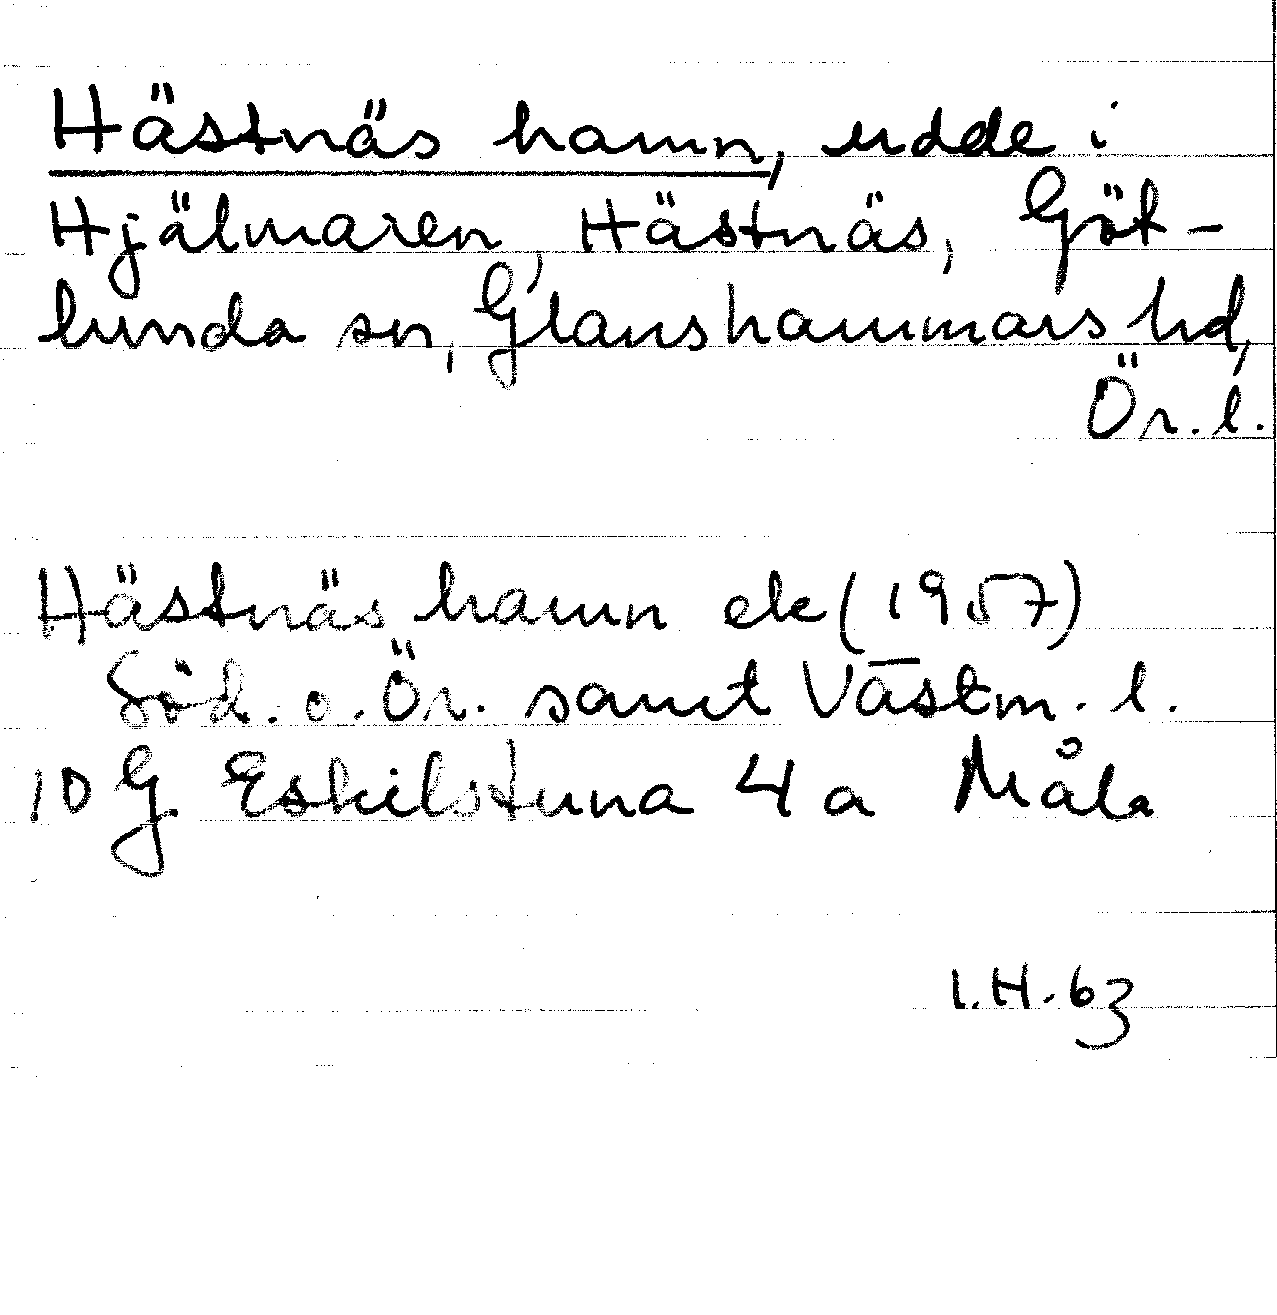 Hästnäs hamn, udde i
Hjälmaren, Hästnäs, Göt-
lunda sn, Glanshammars hd,
Ör. l.
Hästnäs hamn ek (1957)
Söd. o. Ör. samt Västm. l.
10 G Eskilstuna 4 a Måla
I.H. 63